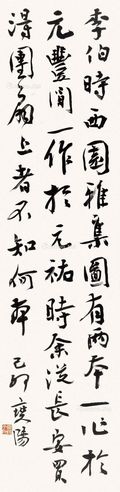 李伯時西園雅集圖有兩本一作於
元豐間一作於元祐時余從長安買
得團扇上者不知何
己卯 襄陽